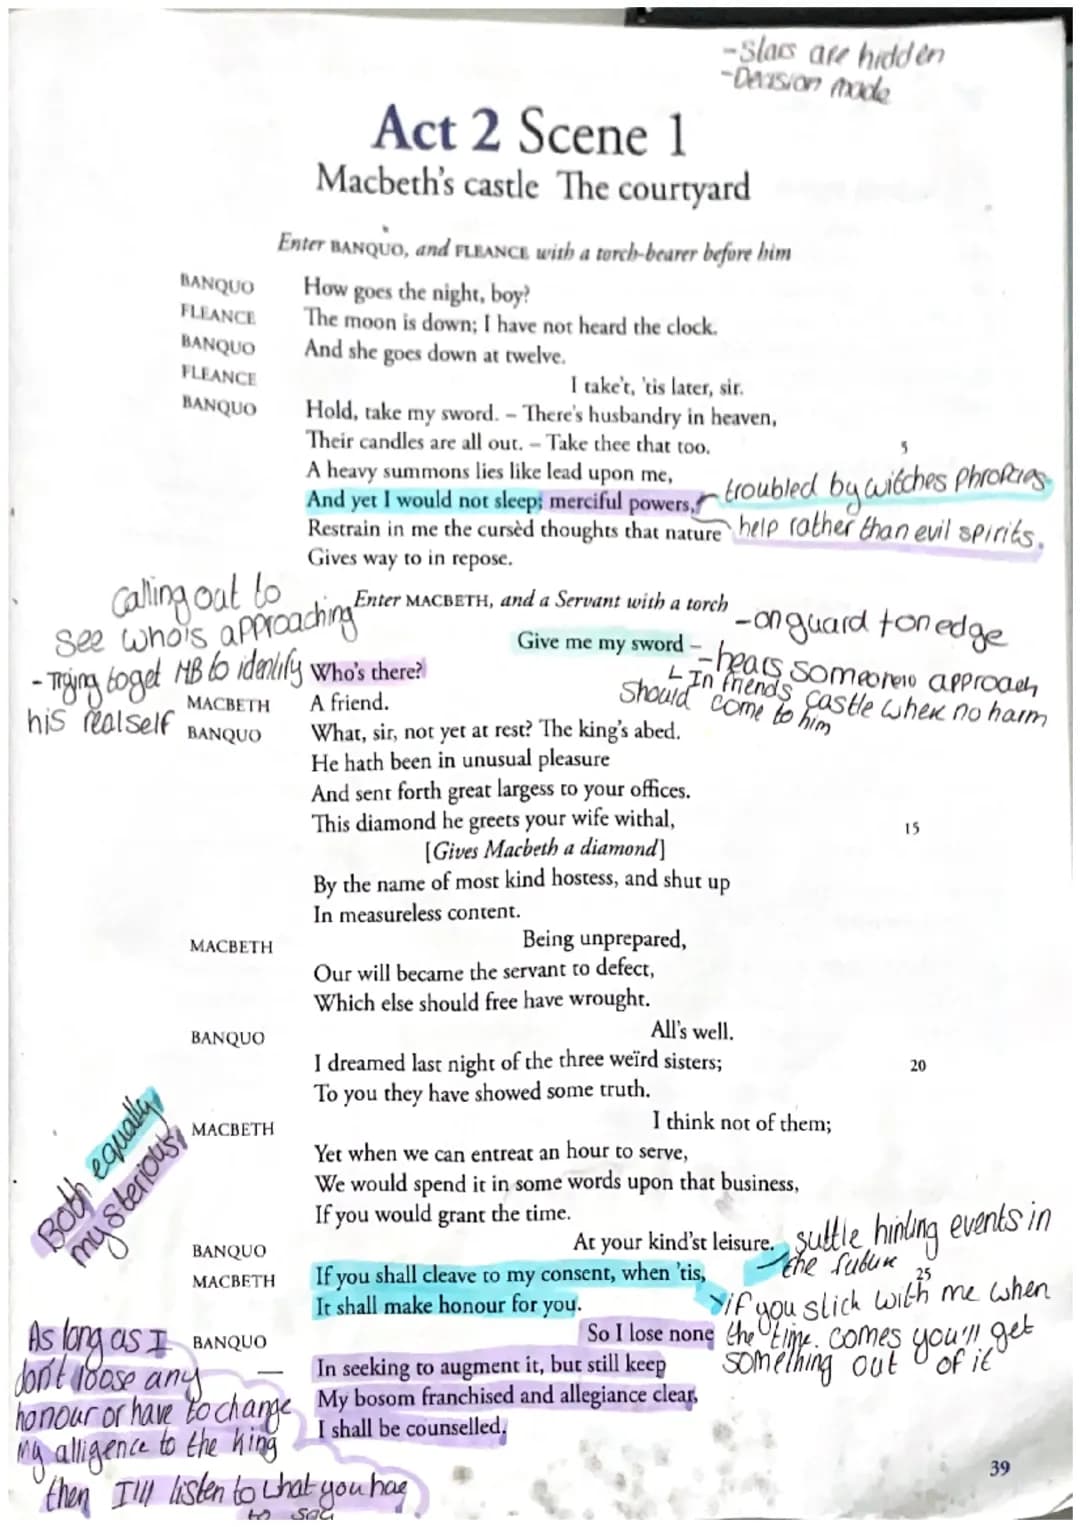 -Stars are hidden
-Decision made
Act 2 Scene 1
Macbeth's castle The courtyard
Enter BANQUO, and FLEANCE with a torch-bearer before him
BANQUO How goes the night, boy?
FLEANCE The moon is down; I have not heard the clock.
BANQUO And she goes down at twelve.
FLEANCE I take't, 'tis later, sir.
BANQUO Hold, take my sword. – There's husbandry in heaven,
Their candles are all out. – Take thee that too. 5
A heavy summons lies like lead upon me,
And yet I would not sleep; merciful powers,
troubled by witches
Restrain in me the cursèd thoughts that nature
help rather than evil spirits.
Gives way to in repose.
Calling out to
see who's approaching
- Trying to get MB to identify
his realself
Enter MACBETH, and a Servant with a torch
Give me my sword –
- on guard + on edge
- hears someone approach
↳ In friends castle where no harm
should come to him
Who's there?
MACBETH A friend.
BANQUO What, sir, not yet at rest? The king's abed.
He hath been in unusual pleasure
And sent forth great largess to your offices.
This diamond he greets your wife withal, 15
[Gives Macbeth a diamond]
By the name of most kind hostess, and shut up
In measureless content.
MACBETH Being unprepared,
Our will became the servant to defect,
Which else should free have wrought.
BANQUO All's well.
I dreamed last night of the three weïrd sisters; 20
To you they have showed some truth.
MACBETH I think not of them;
Yet when we can entreat an hour to serve,
We would spend it in some words upon that business,
If you would grant the time.
Both equally
mysterious
BANQUO At your kind'st leisure.
suttle hinting events in
the future
MACBETH If you shall cleave to my consent, when 'tis, 25
It shall make honour for you.
if you stick with me when
the time. comes you'll get
something out of it
BANQUO So I lose none
In seeking to augment it, but still keep
My bosom franchised and allegiance clear,
I shall be counselled.
As long as I
don't loose any
honour or have to change
my alligence to the king
then I'll listen to what you hae
to say
39